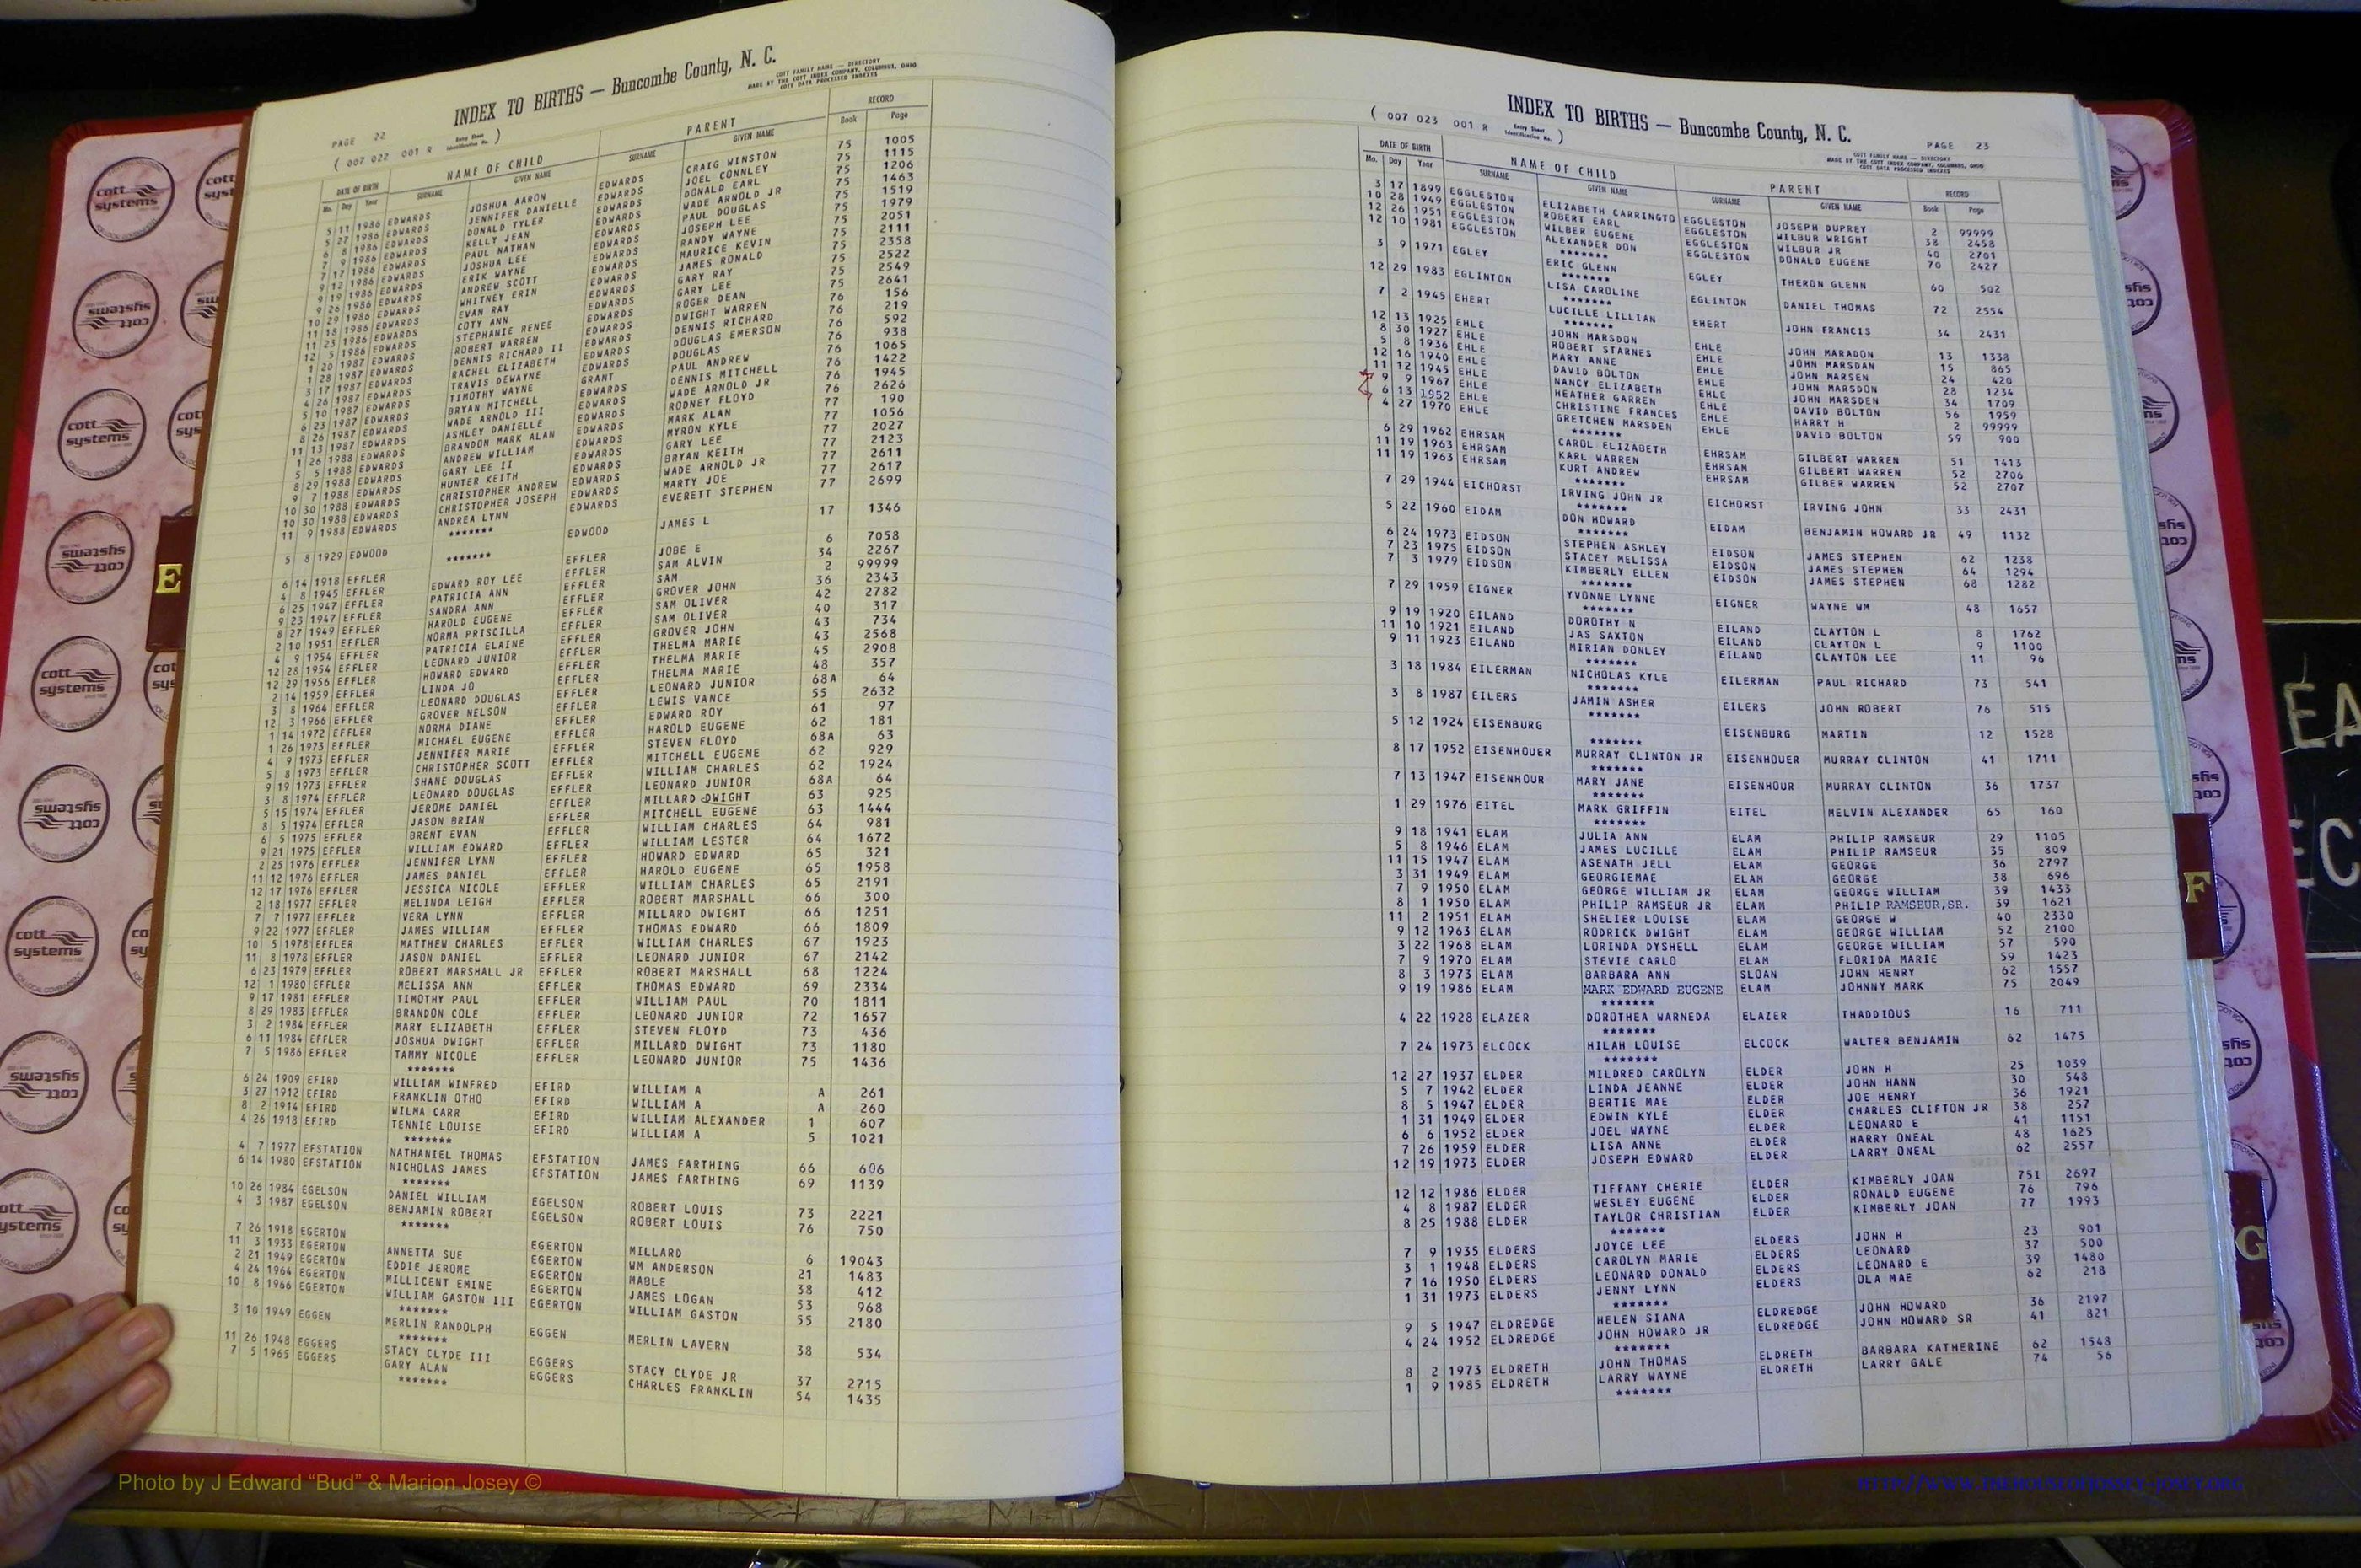 INDEX TO BIRTHS — Buncombe County, N. C.
COTT FAMILY NAME — DIRECTORY
MADE BY THE COTT INDEX COMPANY, COLUMBUS, OHIO
COTT DATA PROCESSED INDEXES
PAGE 22
( 007 022 001 R Entry Sheet Identification No. )
DATE OF BIRTH NAME OF CHILD PARENT RECORD
Mo. Day Year SURNAME GIVEN NAME SURNAME GIVEN NAME Book Page
5 11 1986 EDWARDS JOSHUA AARON EDWARDS CRAIG WINSTON 75 1005
5 27 1986 EDWARDS JENNIFER DANIELLE EDWARDS JOEL CONNLEY 75 1115
6 8 1986 EDWARDS DONALD TYLER EDWARDS DONALD EARL 75 1206
7 9 1986 EDWARDS KELLY JEAN EDWARDS WADE ARNOLD JR 75 1463
7 17 1986 EDWARDS PAUL NATHAN EDWARDS PAUL DOUGLAS 75 1519
9 12 1986 EDWARDS JOSHUA LEE EDWARDS JOSEPH LEE 75 1979
9 19 1986 EDWARDS ERIK WAYNE EDWARDS RANDY WAYNE 75 2051
9 26 1986 EDWARDS ANDREW SCOTT EDWARDS MAURICE KEVIN 75 2111
10 29 1986 EDWARDS WHITNEY ERIN EDWARDS JAMES RONALD 75 2358
11 18 1986 EDWARDS EVAN RAY EDWARDS GARY RAY 75 2522
11 23 1986 EDWARDS COTY ANN EDWARDS GARY LEE 75 2549
12 5 1986 EDWARDS STEPHANIE RENEE EDWARDS ROGER DEAN 75 2641
1 20 1987 EDWARDS ROBERT WARREN EDWARDS DWIGHT WARREN 76 156
1 28 1987 EDWARDS DENNIS RICHARD II EDWARDS DENNIS RICHARD 76 219
3 17 1987 EDWARDS RACHEL ELIZABETH EDWARDS DOUGLAS EMERSON 76 592
4 26 1987 EDWARDS TRAVIS DEWAYNE GRANT DOUGLAS 76 938
5 10 1987 EDWARDS TIMOTHY WAYNE EDWARDS PAUL ANDREW 76 1065
6 23 1987 EDWARDS BRYAN MITCHELL EDWARDS DENNIS MITCHELL 76 1422
8 26 1987 EDWARDS WADE ARNOLD III EDWARDS WADE ARNOLD JR 76 1945
11 13 1987 EDWARDS ASHLEY DANIELLE EDWARDS RODNEY FLOYD 76 2626
1 26 1988 EDWARDS BRANDON MARK ALAN EDWARDS MARK ALAN 77 190
5 5 1988 EDWARDS ANDREW WILLIAM EDWARDS MYRON KYLE 77 1056
8 29 1988 EDWARDS GARY LEE II EDWARDS GARY LEE 77 2027
9 7 1988 EDWARDS HUNTER KEITH EDWARDS BRYAN KEITH 77 2123
10 30 1988 EDWARDS CHRISTOPHER ANDREW EDWARDS WADE ARNOLD JR 77 2611
10 30 1988 EDWARDS CHRISTOPHER JOSEPH EDWARDS MARTY JOE 77 2617
11 9 1988 EDWARDS ANDREA LYNN EDWARDS EVERETT STEPHEN 77 2699
*******
5 8 1929 EDWOOD EDWOOD JAMES L 17 1346
*******
6 14 1918 EFFLER EFFLER JOBE E 6 7058
4 8 1945 EFFLER EDWARD ROY LEE EFFLER SAM ALVIN 34 2267
6 25 1947 EFFLER PATRICIA ANN EFFLER SAM 2 99999
9 23 1947 EFFLER SANDRA ANN EFFLER GROVER JOHN 36 2343
8 27 1949 EFFLER HAROLD EUGENE EFFLER SAM OLIVER 42 2782
2 10 1951 EFFLER NORMA PRISCILLA EFFLER SAM OLIVER 40 317
4 9 1954 EFFLER PATRICIA ELAINE EFFLER GROVER JOHN 43 734
12 28 1954 EFFLER LEONARD JUNIOR EFFLER THELMA MARIE 43 2568
12 29 1956 EFFLER HOWARD EDWARD EFFLER THELMA MARIE 45 2908
2 14 1959 EFFLER LINDA JO EFFLER THELMA MARIE 48 357
3 8 1964 EFFLER LEONARD DOUGLAS EFFLER LEONARD JUNIOR 68A 64
12 3 1966 EFFLER GROVER NELSON EFFLER LEWIS VANCE 55 2632
1 14 1972 EFFLER NORMA DIANE EFFLER EDWARD ROY 61 97
1 26 1973 EFFLER MICHAEL EUGENE EFFLER HAROLD EUGENE 62 181
4 9 1973 EFFLER JENNIFER MARIE EFFLER STEVEN FLOYD 68A 63
5 8 1973 EFFLER CHRISTOPHER SCOTT EFFLER MITCHELL EUGENE 62 929
9 19 1973 EFFLER SHANE DOUGLAS EFFLER WILLIAM CHARLES 62 1924
3 8 1974 EFFLER LEONARD DOUGLAS EFFLER LEONARD JUNIOR 68A 64
5 15 1974 EFFLER JEROME DANIEL EFFLER MILLARD DWIGHT 63 925
8 5 1974 EFFLER JASON BRIAN EFFLER MITCHELL EUGENE 63 1444
6 5 1975 EFFLER BRENT EVAN EFFLER WILLIAM CHARLES 64 981
9 21 1975 EFFLER WILLIAM EDWARD EFFLER WILLIAM LESTER 64 1672
2 25 1976 EFFLER JENNIFER LYNN EFFLER HOWARD EDWARD 65 321
11 12 1976 EFFLER JAMES DANIEL EFFLER HAROLD EUGENE 65 1958
12 17 1976 EFFLER JESSICA NICOLE EFFLER WILLIAM CHARLES 65 2191
2 18 1977 EFFLER MELINDA LEIGH EFFLER ROBERT MARSHALL 66 300
7 7 1977 EFFLER VERA LYNN EFFLER MILLARD DWIGHT 66 1251
9 22 1977 EFFLER JAMES WILLIAM EFFLER THOMAS EDWARD 66 1809
10 5 1978 EFFLER MATTHEW CHARLES EFFLER WILLIAM CHARLES 67 1923
11 8 1978 EFFLER JASON DANIEL EFFLER LEONARD JUNIOR 67 2142
6 23 1979 EFFLER ROBERT MARSHALL JR EFFLER ROBERT MARSHALL 68 1224
12 1 1980 EFFLER MELISSA ANN EFFLER THOMAS EDWARD 69 2334
9 17 1981 EFFLER TIMOTHY PAUL EFFLER WILLIAM PAUL 70 1811
8 29 1983 EFFLER BRANDON COLE EFFLER LEONARD JUNIOR 72 1657
3 2 1984 EFFLER MARY ELIZABETH EFFLER STEVEN FLOYD 73 436
6 11 1984 EFFLER JOSHUA DWIGHT EFFLER MILLARD DWIGHT 73 1180
7 5 1986 EFFLER TAMMY NICOLE EFFLER LEONARD JUNIOR 75 1436
*******
6 24 1909 EFIRD WILLIAM WINFRED EFIRD WILLIAM A A 261
3 27 1912 EFIRD FRANKLIN OTHO EFIRD WILLIAM A A 260
8 2 1914 EFIRD WILMA CARR EFIRD WILLIAM ALEXANDER 1 607
4 26 1918 EFIRD TENNIE LOUISE EFIRD WILLIAM A 5 1021
*******
4 7 1977 EFSTATION NATHANIEL THOMAS EFSTATION JAMES FARTHING 66 606
6 14 1980 EFSTATION NICHOLAS JAMES EFSTATION JAMES FARTHING 69 1139
*******
10 26 1984 EGELSON DANIEL WILLIAM EGELSON ROBERT LOUIS 73 2221
4 3 1987 EGELSON BENJAMIN ROBERT EGELSON ROBERT LOUIS 76 750
*******
7 26 1918 EGERTON EGERTON MILLARD 6 19043
11 3 1933 EGERTON ANNETTA SUE EGERTON WM ANDERSON 21 1483
2 21 1949 EGERTON EDDIE JEROME EGERTON MABLE 38 412
4 24 1964 EGERTON MILLICENT EMINE EGERTON JAMES LOGAN 53 968
10 8 1966 EGERTON WILLIAM GASTON III EGERTON WILLIAM GASTON 55 2180
*******
3 10 1949 EGGEN MERLIN RANDOLPH EGGEN MERLIN LAVERN 38 534
*******
11 26 1948 EGGERS STACY CLYDE III EGGERS STACY CLYDE JR 37 2715
7 5 1965 EGGERS GARY ALAN EGGERS CHARLES FRANKLIN 54 1435
*******
INDEX TO BIRTHS — Buncombe County, N. C.
( 007 023 001 R Entry Sheet Identification No. )
PAGE 23
COTT FAMILY NAME — DIRECTORY
MADE BY THE COTT INDEX COMPANY, COLUMBUS, OHIO
COTT DATA PROCESSED INDEXES
DATE OF BIRTH NAME OF CHILD PARENT RECORD
Mo. Day Year SURNAME GIVEN NAME SURNAME GIVEN NAME Book Page
3 17 1899 EGGLESTON ELIZABETH CARRINGTO EGGLESTON JOSEPH DUPREY 2 99999
10 28 1949 EGGLESTON ROBERT EARL EGGLESTON WILBUR WRIGHT 38 2458
12 26 1951 EGGLESTON WILBER EUGENE EGGLESTON WILBUR JR 40 2701
12 10 1981 EGGLESTON ALEXANDER DON EGGLESTON DONALD EUGENE 70 2427
*******
3 9 1971 EGLEY ERIC GLENN EGLEY THERON GLENN 60 502
*******
12 29 1983 EGLINTON LISA CAROLINE EGLINTON DANIEL THOMAS 72 2554
*******
7 2 1945 EHERT LUCILLE LILLIAN EHERT JOHN FRANCIS 34 2431
*******
12 13 1925 EHLE JOHN MARSDON EHLE JOHN MARADON 13 1338
8 30 1927 EHLE ROBERT STARNES EHLE JOHN MARSDAN 15 865
5 8 1936 EHLE MARY ANNE EHLE JOHN MARSEN 24 420
12 16 1940 EHLE DAVID BOLTON EHLE JOHN MARSDON 28 1234
11 12 1945 EHLE NANCY ELIZABETH EHLE JOHN MARSDEN 34 1709
9 9 1967 EHLE HEATHER GARREN EHLE DAVID BOLTON 56 1959
6 13 1952 EHLE CHRISTINE FRANCES EHLE HARRY H 2 99999
4 27 1970 EHLE GRETCHEN MARSDEN EHLE DAVID BOLTON 59 900
*******
6 29 1962 EHRSAM CAROL ELIZABETH EHRSAM GILBERT WARREN 51 1413
11 19 1963 EHRSAM KARL WARREN EHRSAM GILBERT WARREN 52 2706
11 19 1963 EHRSAM KURT ANDREW EHRSAM GILBER WARREN 52 2707
*******
7 29 1944 EICHORST IRVING JOHN JR EICHORST IRVING JOHN 33 2431
*******
5 22 1960 EIDAM DON HOWARD EIDAM BENJAMIN HOWARD JR 49 1132
*******
6 24 1973 EIDSON STEPHEN ASHLEY EIDSON JAMES STEPHEN 62 1238
7 23 1975 EIDSON STACEY MELISSA EIDSON JAMES STEPHEN 64 1294
7 3 1979 EIDSON KIMBERLY ELLEN EIDSON JAMES STEPHEN 68 1282
*******
7 29 1959 EIGNER YVONNE LYNNE EIGNER WAYNE WM 48 1657
*******
9 19 1920 EILAND DOROTHY N EILAND CLAYTON L 8 1762
11 10 1921 EILAND JAS SAXTON EILAND CLAYTON L 9 1100
9 11 1923 EILAND MIRIAN DONLEY EILAND CLAYTON LEE 11 96
*******
3 18 1984 EILERMAN NICHOLAS KYLE EILERMAN PAUL RICHARD 73 541
*******
3 8 1987 EILERS JAMIN ASHER EILERS JOHN ROBERT 76 515
*******
5 12 1924 EISENBURG EISENBURG MARTIN 12 1528
*******
8 17 1952 EISENHOUER MURRAY CLINTON JR EISENHOUER MURRAY CLINTON 41 1711
*******
7 13 1947 EISENHOUR MARY JANE EISENHOUR MURRAY CLINTON 36 1737
*******
1 29 1976 EITEL MARK GRIFFIN EITEL MELVIN ALEXANDER 65 160
*******
9 18 1941 ELAM JULIA ANN ELAM PHILIP RAMSEUR 29 1105
5 8 1946 ELAM JAMES LUCILLE ELAM PHILIP RAMSEUR 35 809
11 15 1947 ELAM ASENATH JELL ELAM GEORGE 36 2797
3 31 1949 ELAM GEORGIEMAE ELAM GEORGE 38 696
7 9 1950 ELAM GEORGE WILLIAM JR ELAM GEORGE WILLIAM 39 1433
8 1 1950 ELAM PHILIP RAMSEUR JR ELAM PHILIP RAMSEUR,SR. 39 1621
11 2 1951 ELAM SHELIER LOUISE ELAM GEORGE W 40 2330
9 12 1963 ELAM RODRICK DWIGHT ELAM GEORGE WILLIAM 52 2100
3 22 1968 ELAM LORINDA DYSHELL ELAM GEORGE WILLIAM 57 590
7 9 1970 ELAM STEVIE CARLO ELAM FLORIDA MARIE 59 1423
8 3 1973 ELAM BARBARA ANN SLOAN JOHN HENRY 62 1557
9 19 1986 ELAM MARK EDWARD EUGENE ELAM JOHNNY MARK 75 2049
*******
4 22 1928 ELAZER DOROTHEA WARNEDA ELAZER THADDIOUS 16 711
*******
7 24 1973 ELCOCK HILAH LOUISE ELCOCK WALTER BENJAMIN 62 1475
*******
12 27 1937 ELDER MILDRED CAROLYN ELDER JOHN H 25 1039
5 7 1942 ELDER LINDA JEANNE ELDER JOHN HANN 30 548
8 5 1947 ELDER BERTIE MAE ELDER JOE HENRY 36 1921
1 31 1949 ELDER EDWIN KYLE ELDER CHARLES CLIFTON JR 38 257
6 6 1952 ELDER JOEL WAYNE ELDER LEONARD E 41 1151
7 26 1959 ELDER LISA ANNE ELDER HARRY ONEAL 48 1625
12 19 1973 ELDER JOSEPH EDWARD ELDER LARRY ONEAL 62 2557
12 12 1986 ELDER TIFFANY CHERIE ELDER KIMBERLY JOAN 751 2697
4 8 1987 ELDER WESLEY EUGENE ELDER RONALD EUGENE 76 796
8 25 1988 ELDER TAYLOR CHRISTIAN ELDER KIMBERLY JOAN 77 1993
*******
7 9 1935 ELDERS JOYCE LEE ELDERS JOHN H 23 901
3 1 1948 ELDERS CAROLYN MARIE ELDERS LEONARD 37 500
7 16 1950 ELDERS LEONARD DONALD ELDERS LEONARD E 39 1480
1 31 1973 ELDERS JENNY LYNN ELDERS OLA MAE 62 218
*******
9 5 1947 ELDREDGE HELEN SIANA ELDREDGE JOHN HOWARD 36 2197
4 24 1952 ELDREDGE JOHN HOWARD JR ELDREDGE JOHN HOWARD SR 41 821
*******
8 2 1973 ELDRETH JOHN THOMAS ELDRETH BARBARA KATHERINE 62 1548
1 9 1985 ELDRETH LARRY WAYNE ELDRETH LARRY GALE 74 56
*******
E
F
G
cott systems
Photo by J Edward “Bud” & Marion Josey ©
HTTP://WWW.THEHOUSEOFJOSSEY-JOSEY.ORG